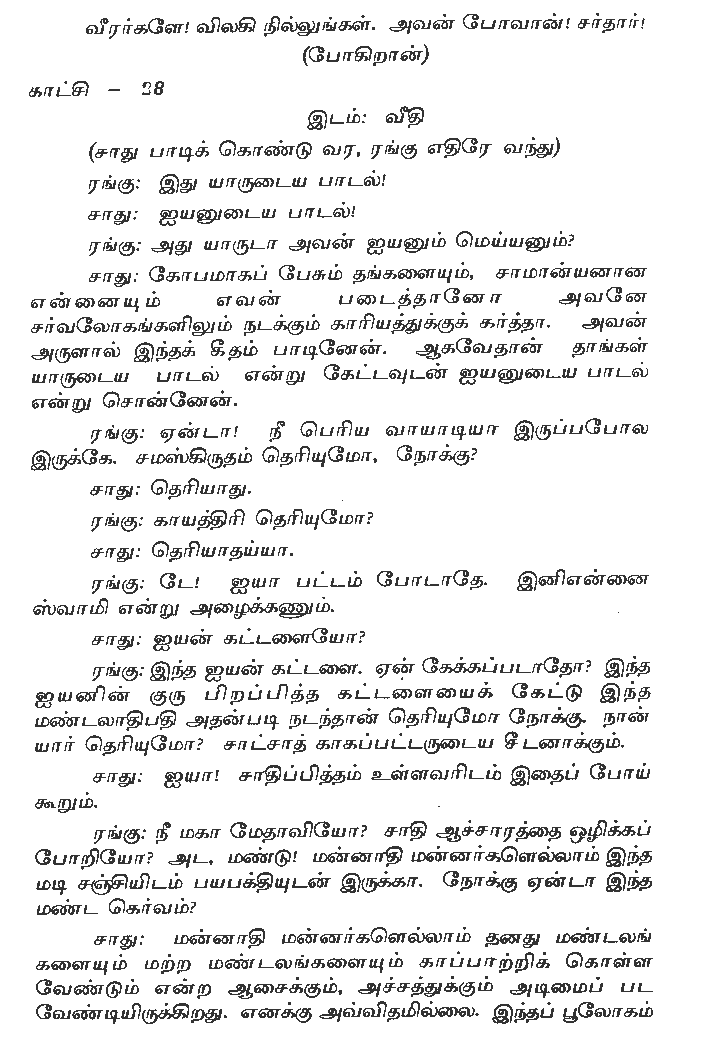 வீரர்களே! விலகி நில்லுங்கள். அவன் போவான்! சர்தார்!
(போகிறான்)
காட்சி – 28
இடம்: வீதி
(சாது பாடிக் கொண்டு வர, ரங்கு எதிரே வந்து)
ரங்கு: இது யாருடைய பாடல்!
சாது: ஐயனுடைய பாடல்!
ரங்கு: அது யாருடா அவன் ஐயனும் மெய்யனும்?
சாது: கோபமாகப் பேசும் தங்களையும், சாமான்யனான
என்னையும் எவன் படைத்தானோ அவனே
சர்வலோகங்களிலும் நடக்கும் காரியத்துக்குக் கர்த்தா. அவன்
அருளால் இந்தக் கீதம் பாடினேன். ஆகவேதான் தாங்கள்
யாருடைய பாடல் என்று கேட்டவுடன் ஐயனுடைய பாடல்
என்று சொன்னேன்.
ரங்கு: ஏன்டா! நீ பெரிய வாயாடியா இருப்பபோல
இருக்கே. சமஸ்கிருதம் தெரியுமோ, நோக்கு?
சாது: தெரியாது.
ரங்கு: காயத்திரி தெரியுமோ?
சாது: தெரியாதய்யா.
ரங்கு: டே! ஐயா பட்டம் போடாதே. இனிஎன்னை
ஸ்வாமி என்று அழைக்கணும்.
சாது: ஐயன் கட்டளையோ?
ரங்கு: இந்த ஐயன் கட்டளை. ஏன் கேக்கப்படாதோ? இந்த
ஐயனின் குரு பிறப்பித்த கட்டளையைக் கேட்டு இந்த
மண்டலாதிபதி அதன்படி நடந்தான் தெரியுமோ நோக்கு. நான்
யார் தெரியுமோ? சாட்சாத் காகப்பட்டருடைய சீடனாக்கும்.
சாது: ஐயா! சாதிப்பித்தம் உள்ளவரிடம் இதைப் போய்
கூறும்.
ரங்கு: நீ மகா மேதாவியோ? சாதி ஆச்சாரத்தை ஒழிக்கப்
போறியோ? அட, மண்டு! மன்னாதி மன்னர்களெல்லாம் இந்த
மடி சஞ்சியிடம் பயபக்தியுடன் இருக்கா. நோக்கு ஏன்டா இந்த
மண்ட கெர்வம்?
சாது: மன்னாதி மன்னர்களெல்லாம் தனது மண்டலங்
களையும் மற்ற மண்டலங்களையும் காப்பாற்றிக் கொள்ள
வேண்டும் என்ற ஆசைக்கும், அச்சத்துக்கும் அடிமைப் பட
வேண்டியிருக்கிறது. எனக்கு அவ்விதமில்லை. இந்தப் பூலோகம்